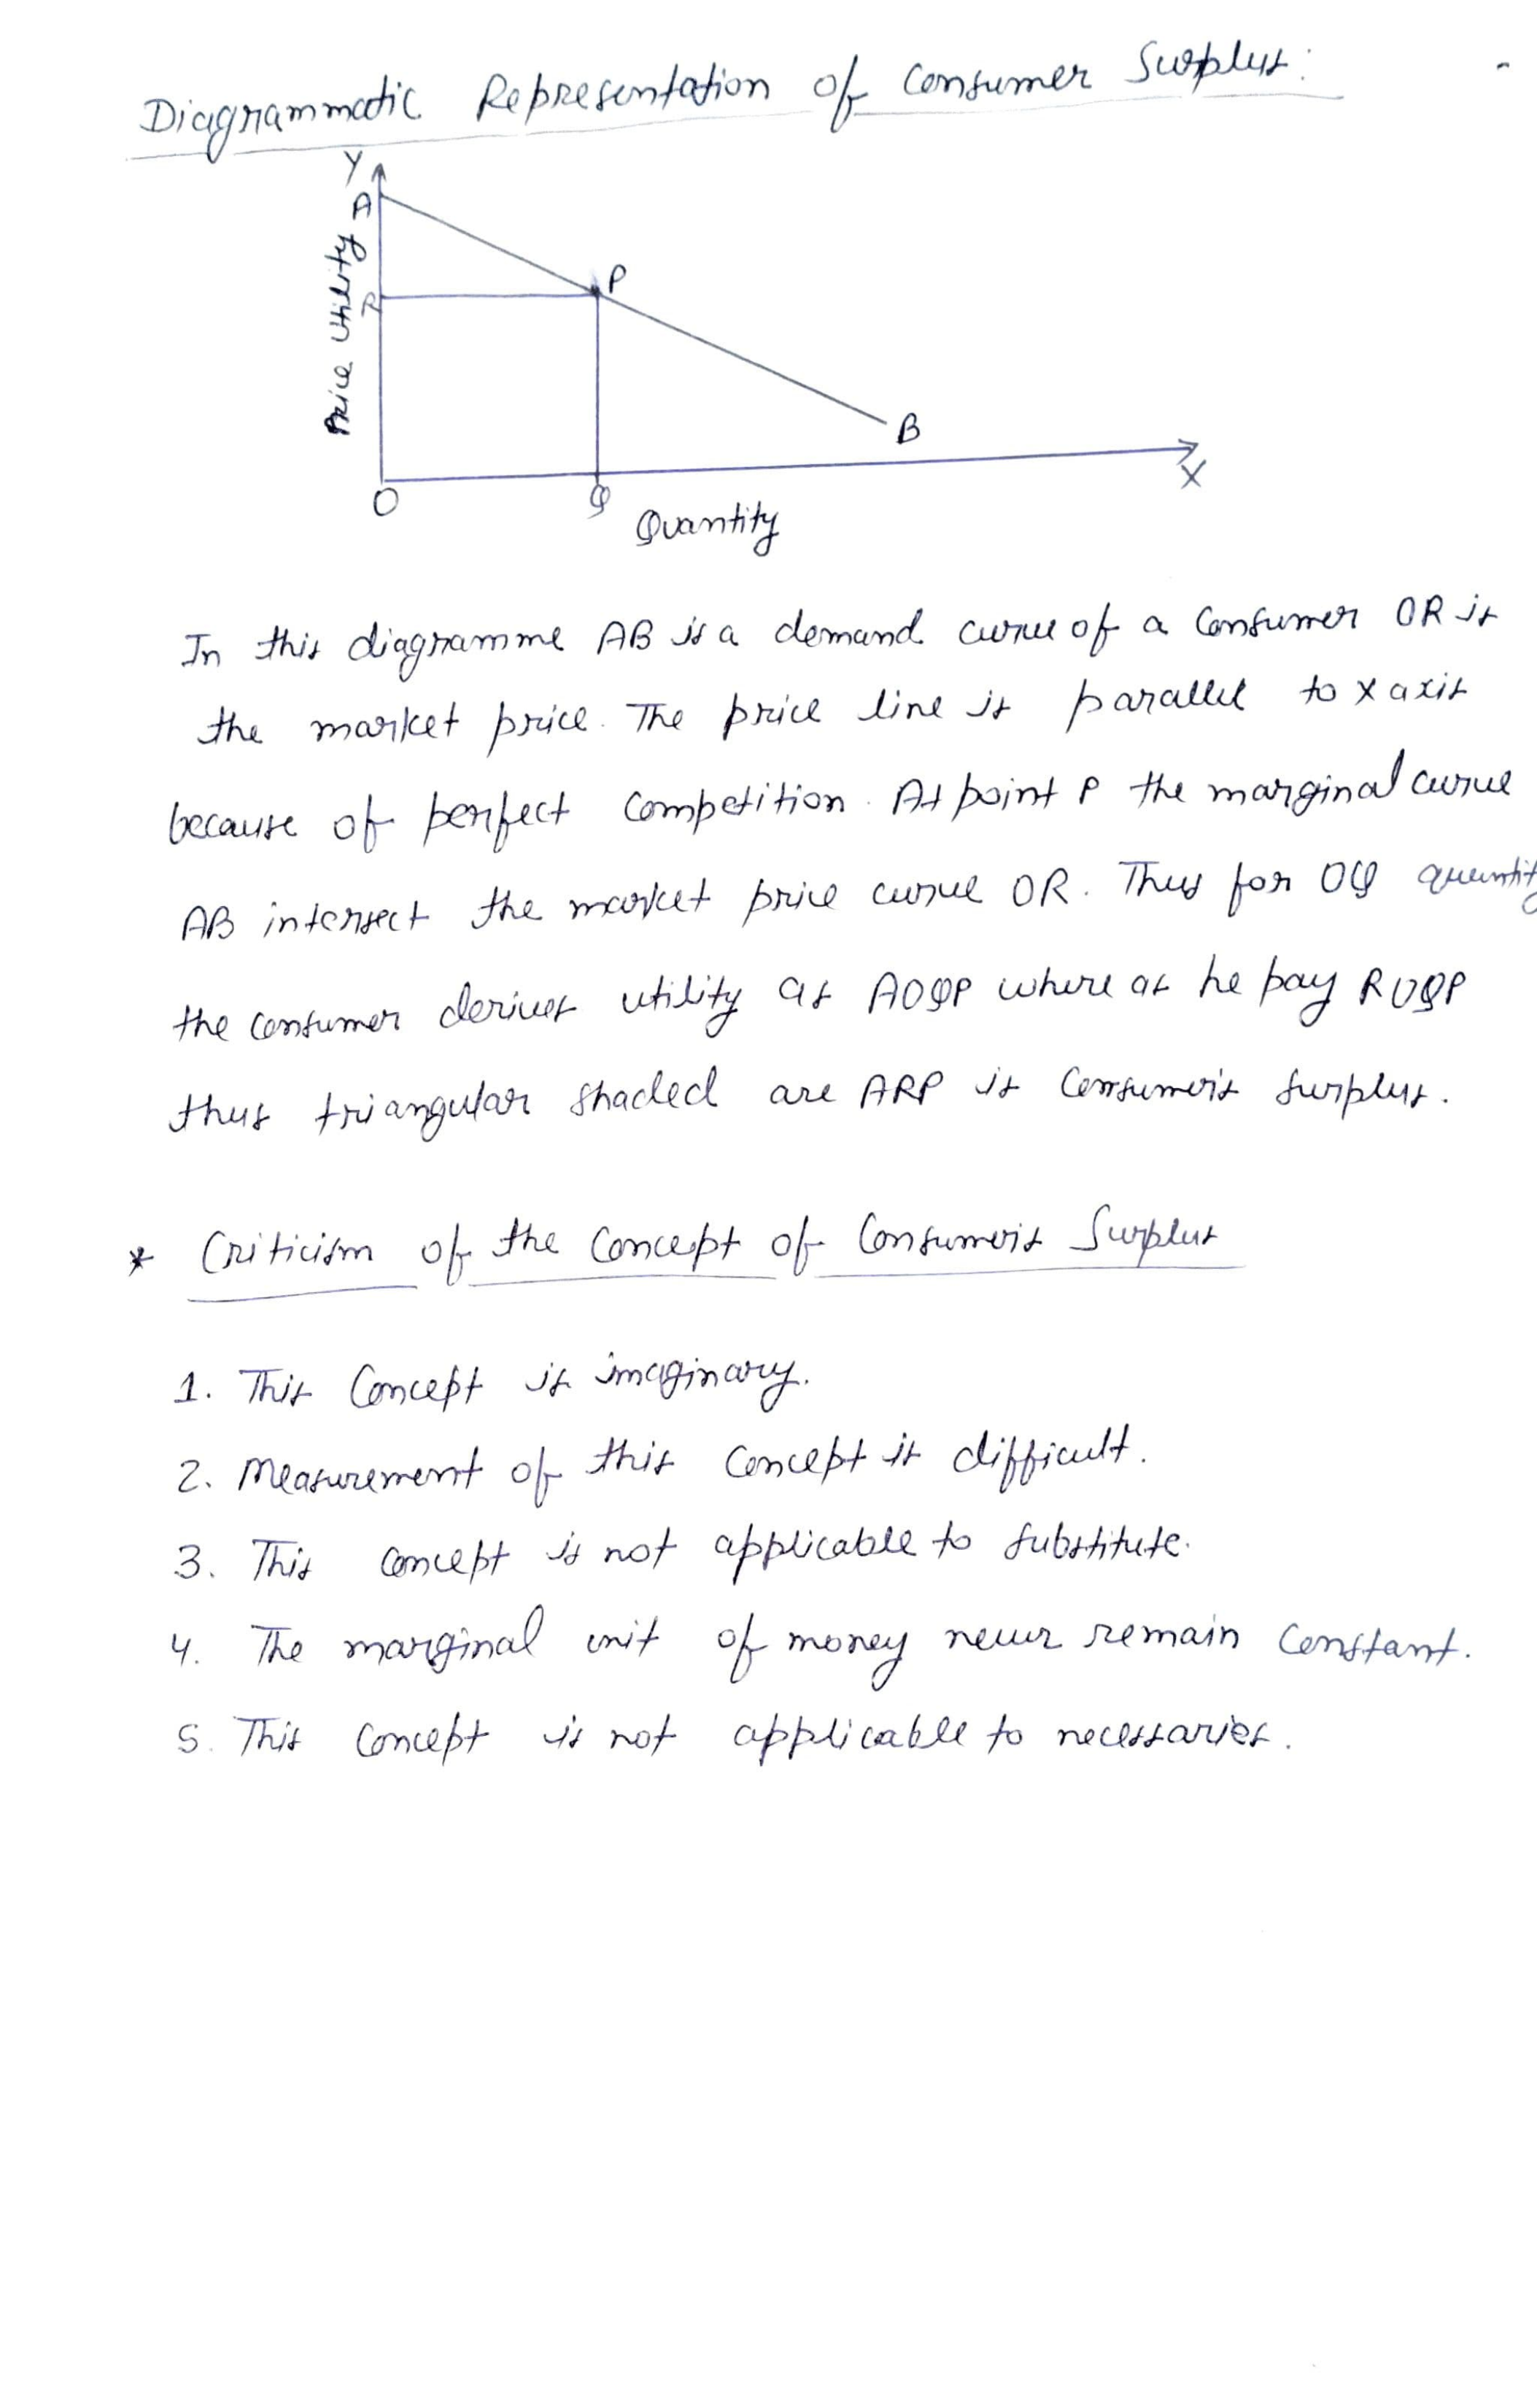 Diagrammatic Representation of Consumer Surplus:
Y
A
Price Utility
R
P
B
O
Q
X
Quantity
In this diagramme AB is a demand curve of a Consumer OR is
the market price. The price line is parallel to x axis
because of perfect Competition. At point P the marginal curve
AB intersect the market price curve OR. Thus for OQ quantity
the consumer derives utility as AOQP where as he pay ROQP
thus triangular shaded are ARP is Consumer's Surplus.
* Criticism of the Concept of Consumer's Surplus
1. This Concept is imaginary.
2. Measurement of this Concept is difficult.
3. This concept is not applicable to substitute.
4. The marginal unit of money never remain Constant.
5. This Concept is not applicable to necessaries.